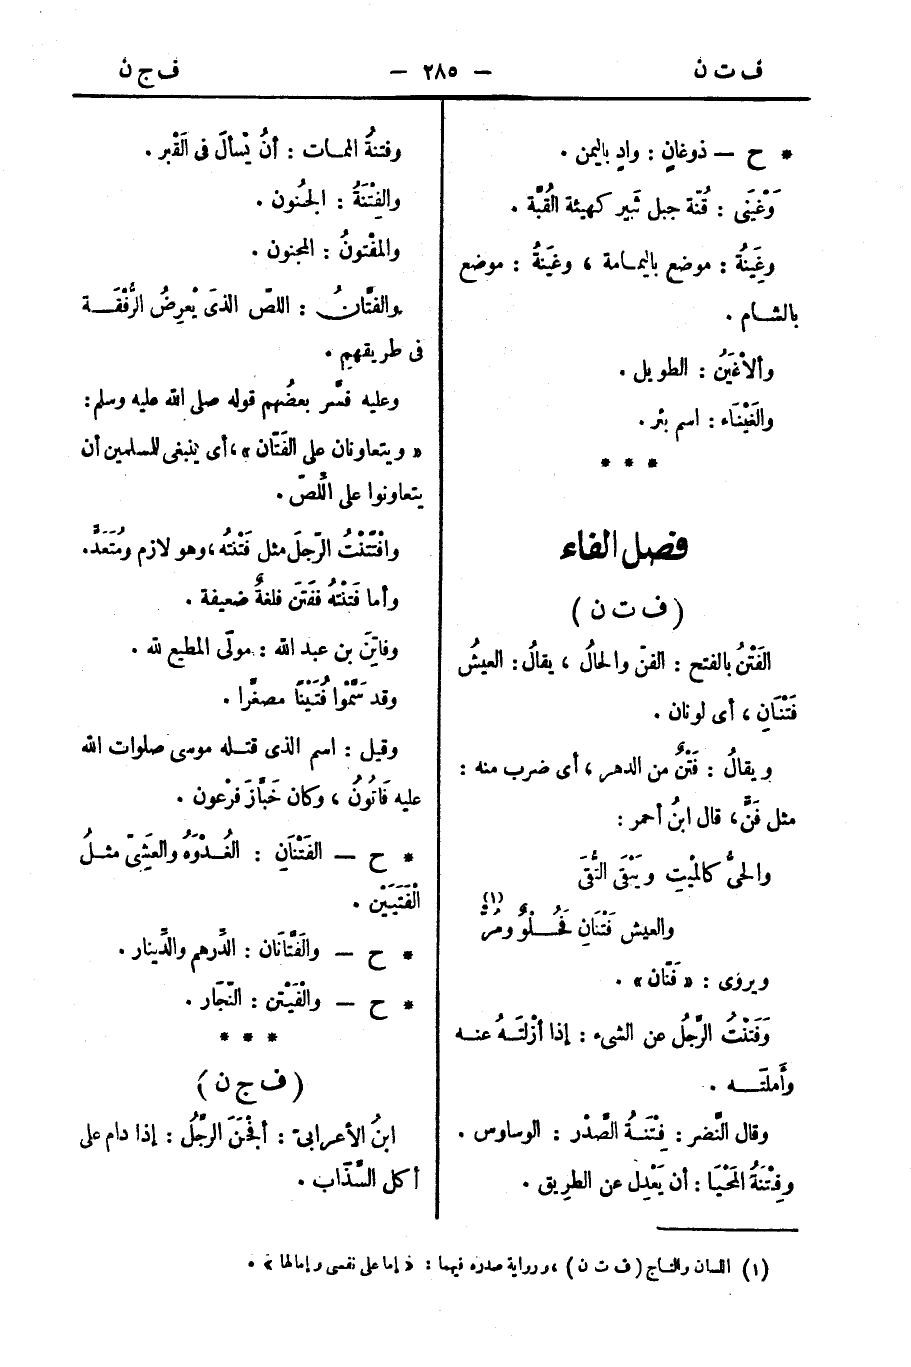 ف ت ن
— ٢٨٥ —
ف ج ن
* ح — ذوغانٍ : وادٍ باليمن .
وَغَيْنَى : قُنّة جبل ثَبير كهيئة القُبَّة .
وغَينَةُ : موضع باليمامة ، وغَينَةُ : موضع
بالشام .
وألاغْيَنُ : الطويل .
والغَيْنَاء : اسم بئر .
* * *
فصل الفاء
( ف ت ن )
الفَتْنُ بالفتح : الفنّ والحالُ ، يقالُ : العيشُ
فَتْنَانِ ، أى لونان .
ويقالُ : فَتْنٌ من الدهر ، أى ضرب منه :
مثل فَنٍّ ، قال ابنُ أحمر :
والحىُّ كالميْتِ ويَبْقَى التُّقَى
والعيش فَتْنَانِ فَحُلْوٌ ومُرّْ (١)
ويروى : « فَنَّان » .
وَفَتَنْتُ الرَّجُلَ عن الشىء : إذا أزْلتَهُ عنه
وأَملتَه .
وقال النَّضر : فِتْنَةُ الصَّدْر : الوساوس .
وفِتْنَةُ المَحْيَا : أن يَعْدِل عن الطريق .
وفتنةُ الممات : أنْ يُسألَ فى القَبْر .
والفِتْنَةُ : الجُنون .
والمفْتونُ : المجنون .
والفَتَّانُ : اللصّ الذى يْعرِضُ الرُّفْقَة
فى طريقهم .
وعليه فسَّر بعضُهم قوله صلى الله عليه وسلم :
« ويتعاونان على الفَتّان » ، أى ينبغى للمسلمين أن
يتعاونوا على اللّصّ .
وافْتَتَنْتُ الرّجلَ مثل فَتَنْتُه ، وهو لازم ومُتَعَدٍّ .
وأما فَتَنْتُه ففَتَنَ فلغةٌ ضعيفة .
وفاتِنَ بن عبد الله : مولَى المطيع لله .
وقد سَمَّوْا فُتَيْنًا مصغّرا .
وقيل : اسم الذى قتله موسى صلوات الله
عليه فَاتُونُ ، وكان خَبَّازَ فرْعون .
* ح — الفَتْنَانِ : الغُدْوَةُ والعَشِىّ مثلُ
الْفَتَيَيْن .
* ح — والفَتَّانَان : الدِّرهم والدِّينار .
* ح — والْفَيْتَن : النّجّار .
* * *
( ف ج ن )
ابنُ الأعرابىّ : أفْجَنَ الرَّجُلُ : إذا دام على
أكل السَّذّاب .
(١) اللسان والتاج ( ف ت ن ) ، ورواية صدره فيهما : « إما على نفسى وإمالها » .